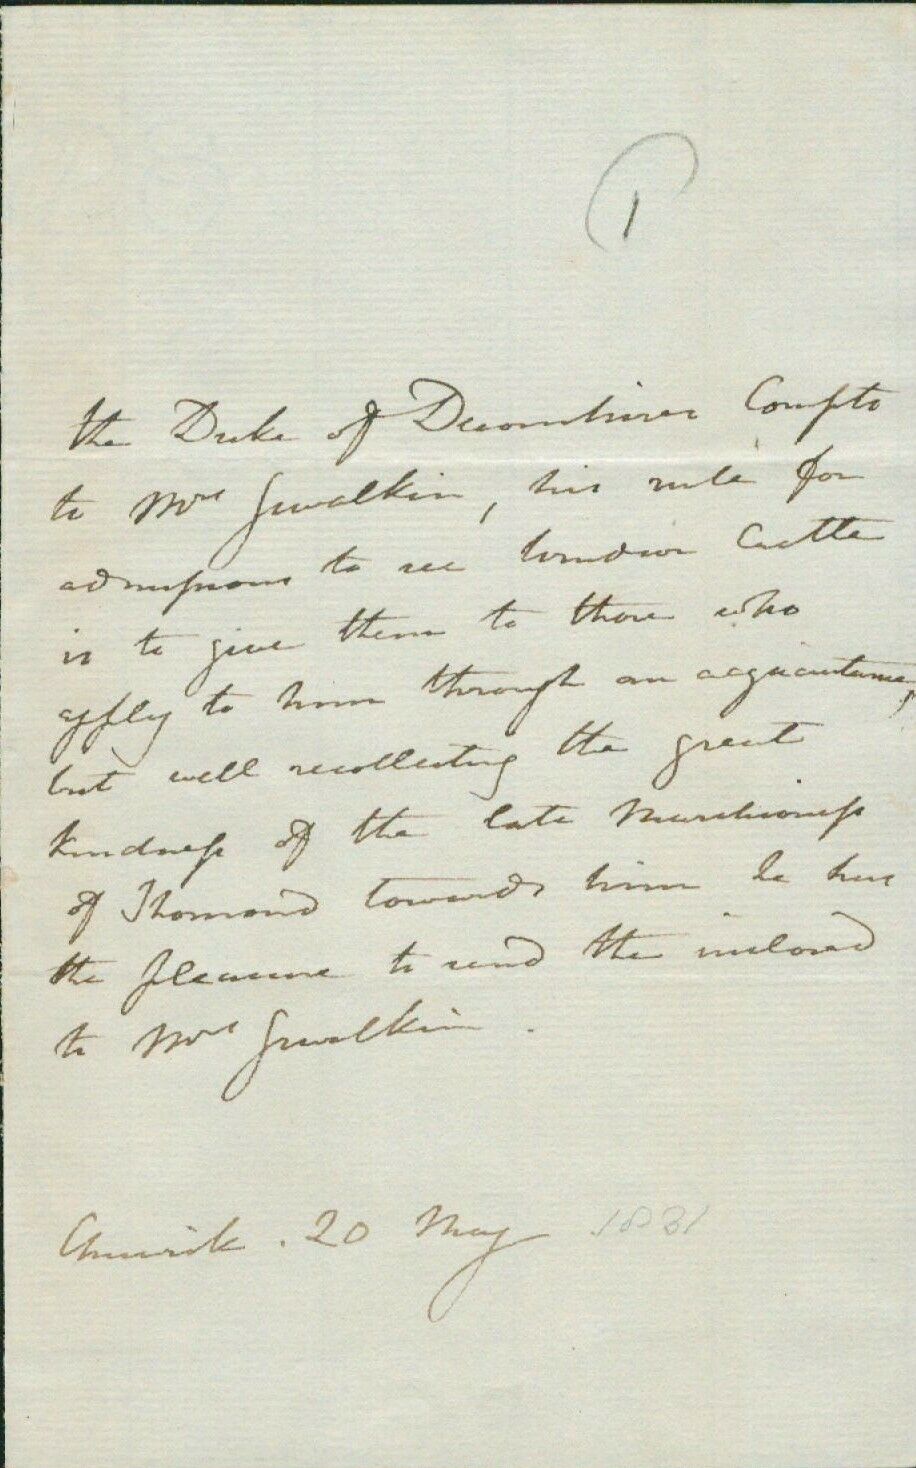 1
the Duke of Devonshires Compts
to Mrs Gwatkin, his rule for
admissions to see Windsor Castle
is to give them to those who
apply to him through an acquaintance,
but well recollecting the great
kindness of the late Marchioness
of Thomond towards him he has
the pleasure to send the inclosed
to Mrs Gwatkin.
Chiswick . 20 May 1831